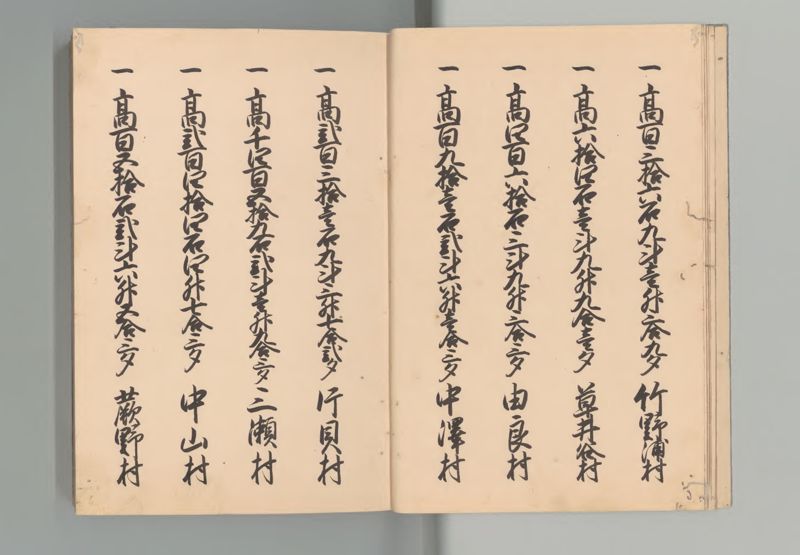 一 高百三拾六石九斗壹升三合九夕 竹野浦村
一 高六拾四石壹斗九升九合壹夕 草井谷村
一 高四百六拾石三斗九升三合三夕 由良村
一 高百九拾壹石貳斗六升壹合三夕 中澤村
一 高貳百三拾壹石九斗三升七合貳夕 行貝村
一 高千四百五拾九石貳斗壹升九合三夕 三瀬村
一 高貳百四拾四石四升七合三夕 中山村
一 高百五拾石貳斗六升五合三夕 蕨野村